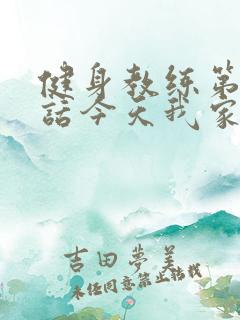 健身教练第
話今天我家
吉田夢美
未经同意禁止转载